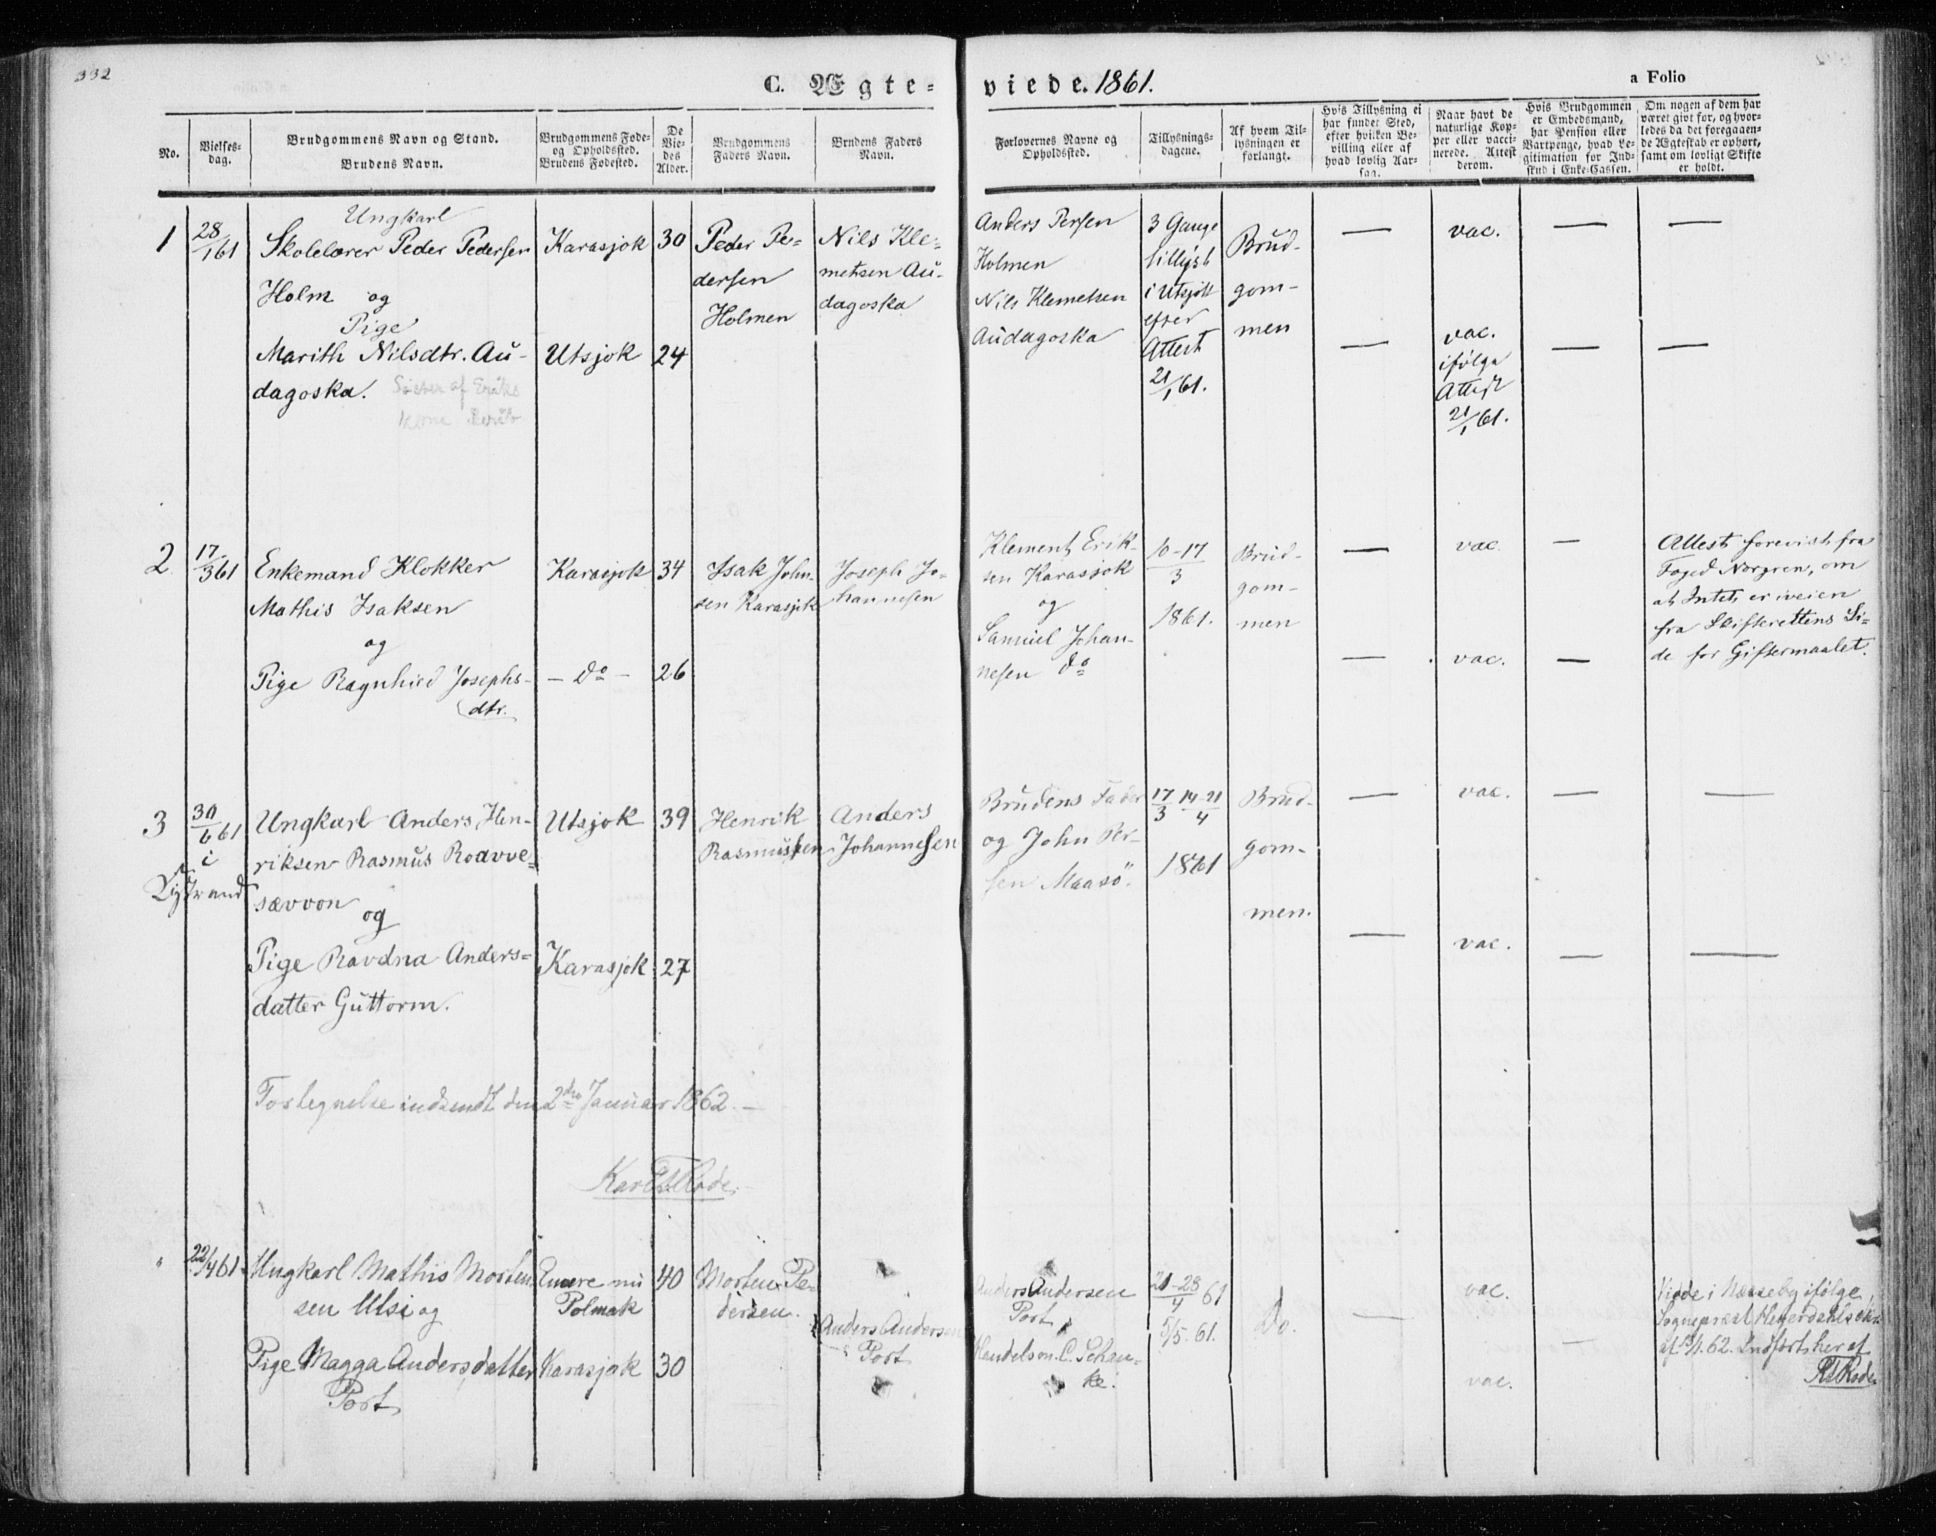 332
C. Ægte-
viede. 1861.
a Folio
No.
Vielses-
dag.
Brudgommens Navn og Stand.
Brudens Navn.
Brudgommens Føde-
og Opholdssted.
Brudens Fødested.
De
Vie-
des
Alder.
Brudgommens
Faders Navn.
Brudens Faders
Navn.
Forlovernes Navne og
Opholdssted.
Tillysnings-
dagene.
Af hvem Til-
lysningen er
forlangt.
Hvis Tillysning ei
har fundet Sted,
efter hvilken Be-
villing eller af
hvad lovlig Aar-
sag.
Naar havt de
naturlige Kop-
per eller vacci-
nerede. Attest
derom.
Hvis Brudgommen
er Embedsmand,
har Pension eller
Vartpenge, hvad Le-
gitimation for Ind-
skud i Enke-Cassen.
Om nogen af dem har
været givt før, og hvor-
ledes da det foregaaen-
de Ægteskab er ophørt,
samt om lovligt Skifte
er holdt.
1
28/1 61
Ungkarl
Skolelærer Peder Pedersen
Holm og
Pige
Marith Nilsdtr. Au-
dagoska.
Søster af Eriks
Kone
Karasjok
Utsjok
30
24
Peder Pe-
dersen
Holmen
Nils Kle-
metsen Au-
dagoska
Anders Persen
Holmen
Nils Klemetsen
Audagoska
3 Gange
tillyst
i Utsjok
efter
Attest
21/1 61.
Brud-
gom-
men
—
—
vac.
vac.
ifølge
Attest
21/1 61.
—
—
—
—
2
17/3 61
Enkemand Klokker
Mathis Isaksen
og
Pige Ragnhied Josephs-
dtr.
Karasjok
— do —
34
26
Isak John-
sen Karasjok
Joseph Jo-
hannesen
Klement Erik-
sen Karasjok
og
Samuel Johan-
nesen do
10-17
3
1861.
Brud-
gom-
men
—
—
vac.
vac.
—
—
Attest forevist fra
Foged Norgren, om
at Intet er iveien
fra Skifterettens Si-
de for Giftermaalet.
3
30/6 61
i
Ungkarl Anders Hen-
riksen Rasmus Roavve-
sævvon
og
Pige Ravdna Anders-
datter Guttorm.
Utsjok
Karasjok
39
27
Henrik
Rasmussen
Anders
Johannesen
Brudens Fader
og John Per-
sen Maasö.
17/3 14-21/4
1861
Brud-
gom-
men.
—
—
vac.
vac.
—
—
—
—
Fortegnelse indsendt den 2den Januar 1862. —
22/4 61
Ungkarl Mathis Morten-
sen Utsi og
Pige Magga Andersdatter
Port
Enare nu
Polmak
Karasjok
40
30
Morten Pe-
dersen.
Anders Andersen
Port
Anders Andersen
Port
Handelsm. C. Schan-
ke.
21-28/4 61
5/5. 61.
Do.
—
vac.
vac.
—
Viede i Næsseby ifølge
Sognepræst
Indført her af